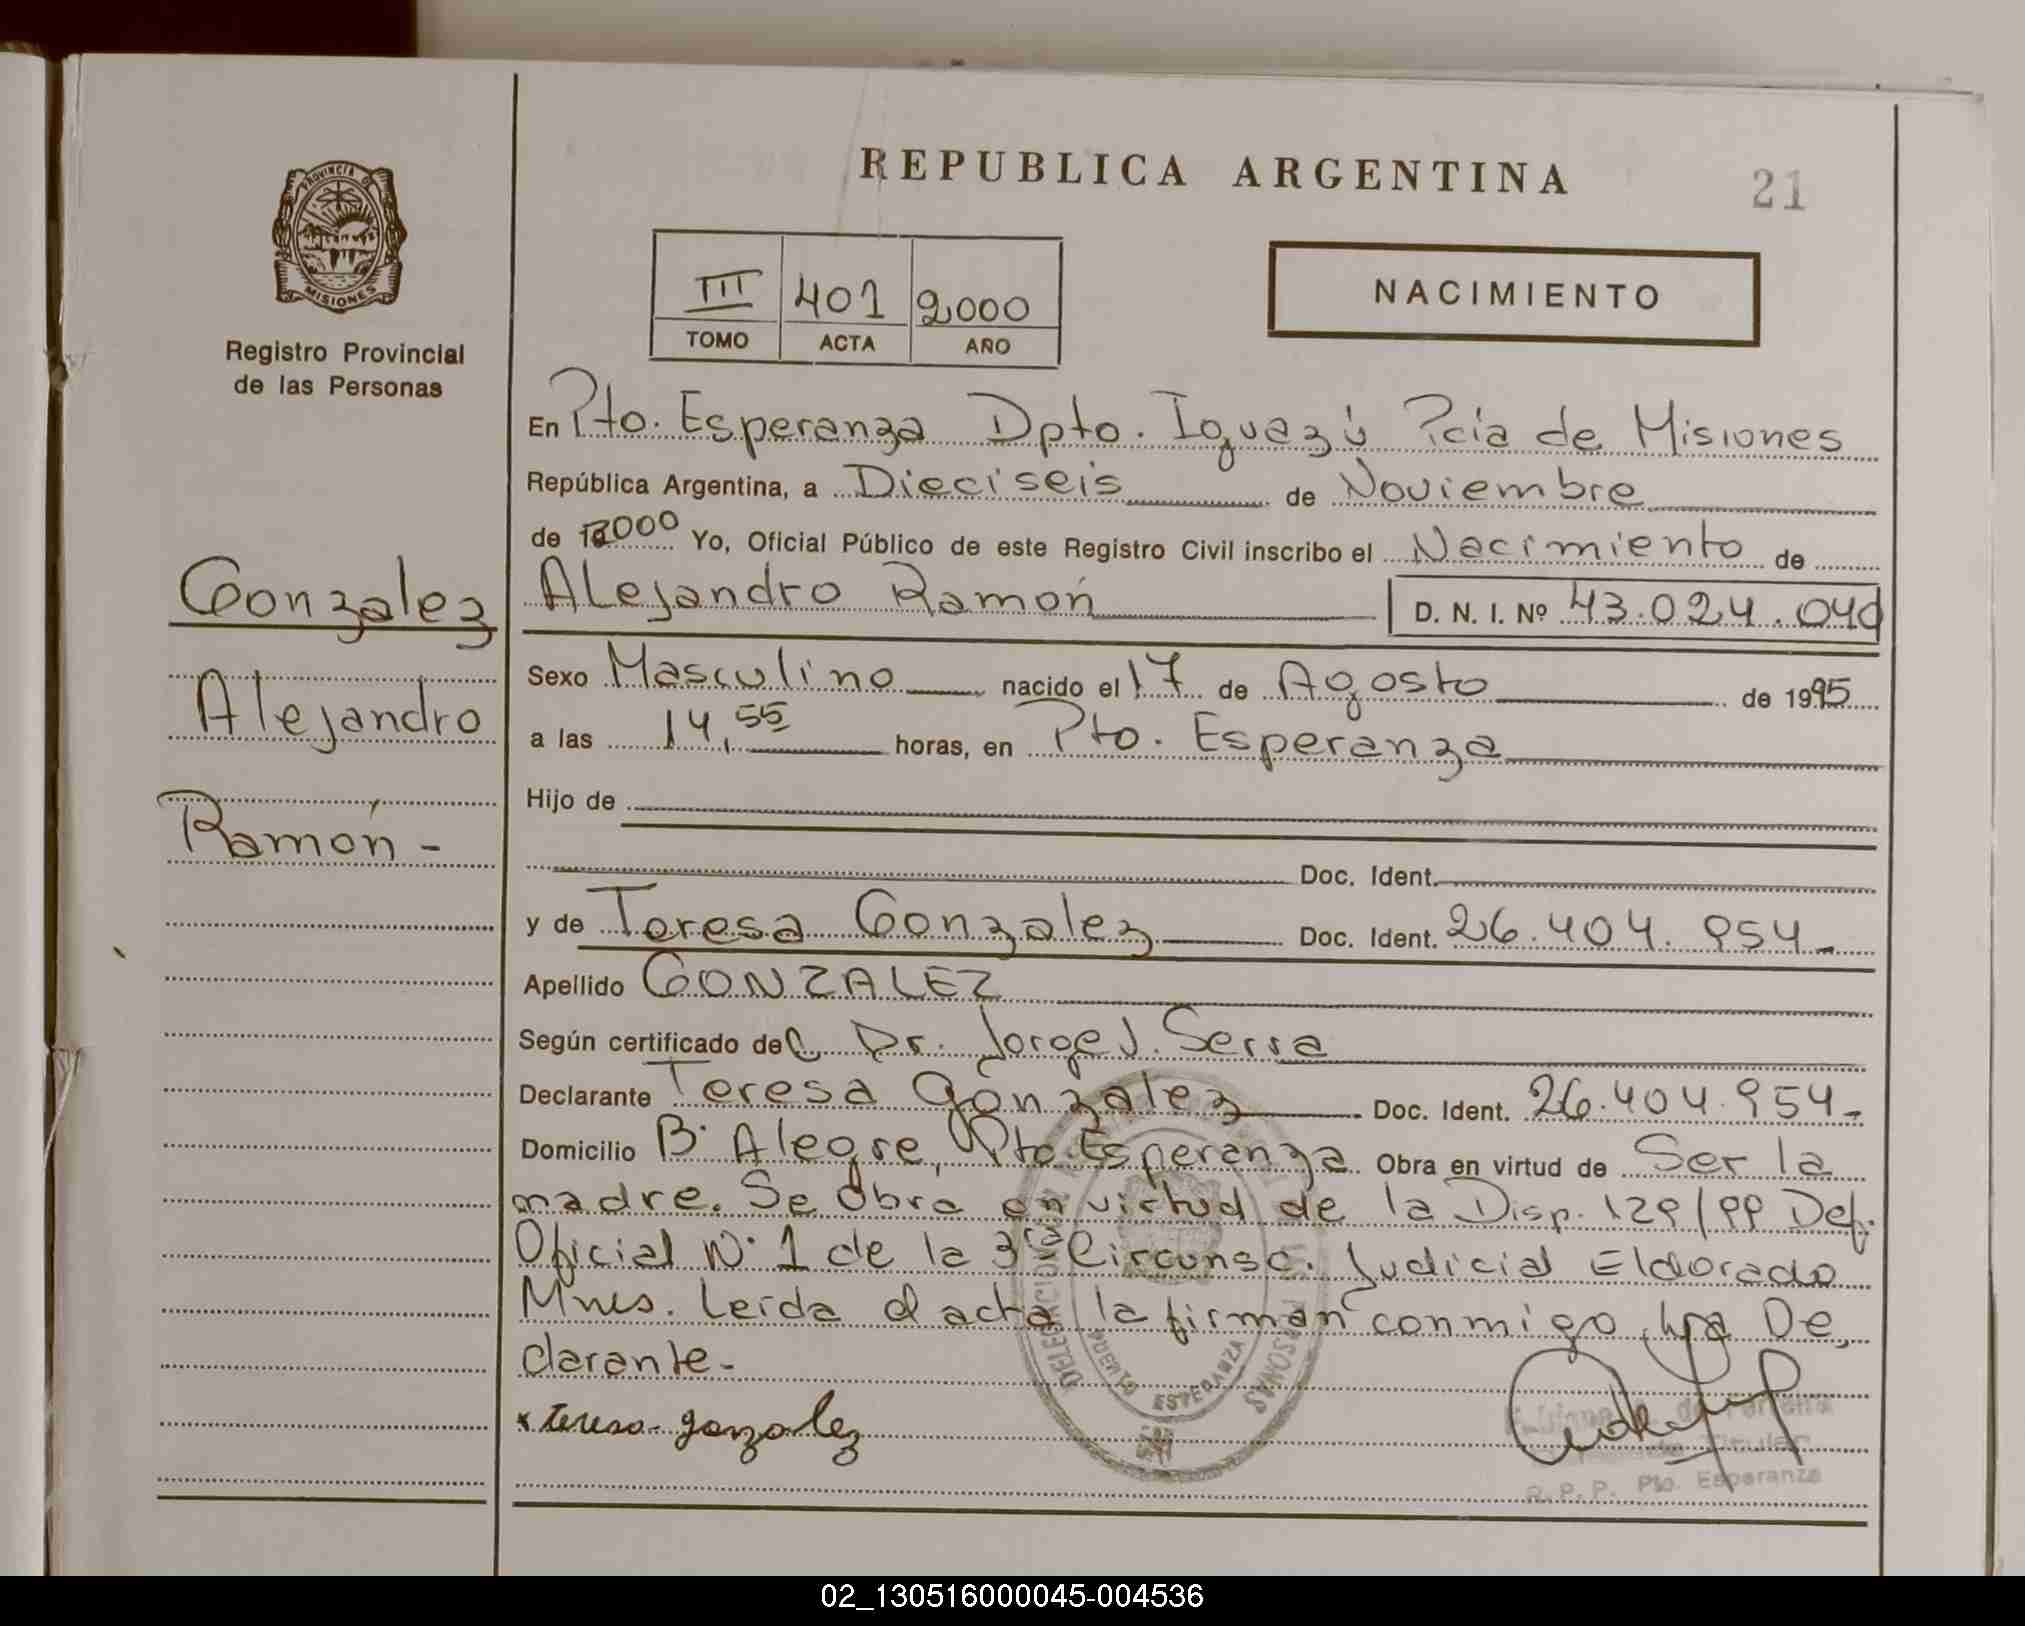 REPUBLICA ARGENTINA
21
PROVINCIA DE
MISIONES
Registro Provincial
de las Personas
III 401 2000
TOMO ACTA AÑO
NACIMIENTO
En Pto. Esperanza Dpto. Iguazú Pcia de Misiones
República Argentina, a Dieciseis de Noviembre
de 2000 Yo, Oficial Público de este Registro Civil inscribo el Nacimiento de
Gonzalez
Alejandro
Ramón -
Alejandro Ramón D. N. I. Nº 43.024.040
Sexo Masculino nacido el 17 de Agosto de 1995
a las 14,55 horas, en Pto. Esperanza
Hijo de
Doc. Ident.
y de Teresa Gonzalez Doc. Ident. 26.404.954-
Apellido GONZALEZ
Según certificado del Dr. Jorge J. Serra
Declarante Teresa Gonzalez Doc. Ident. 26.404.954-
Domicilio B· Alegre, Pto. Esperanza Obra en virtud de Ser la
madre. Se obra en virtud de la Disp. 129/99 Def.
Oficial N· 1 de la 3ra Circunsc. Judicial Eldorado
Mnes. Leída el acta la firman conmigo la De,
clarante-
x teresa gonzalez
PUERTO ESPERANZA
Titular
R.P.P. Pto. Esperanza
02_130516000045-004536